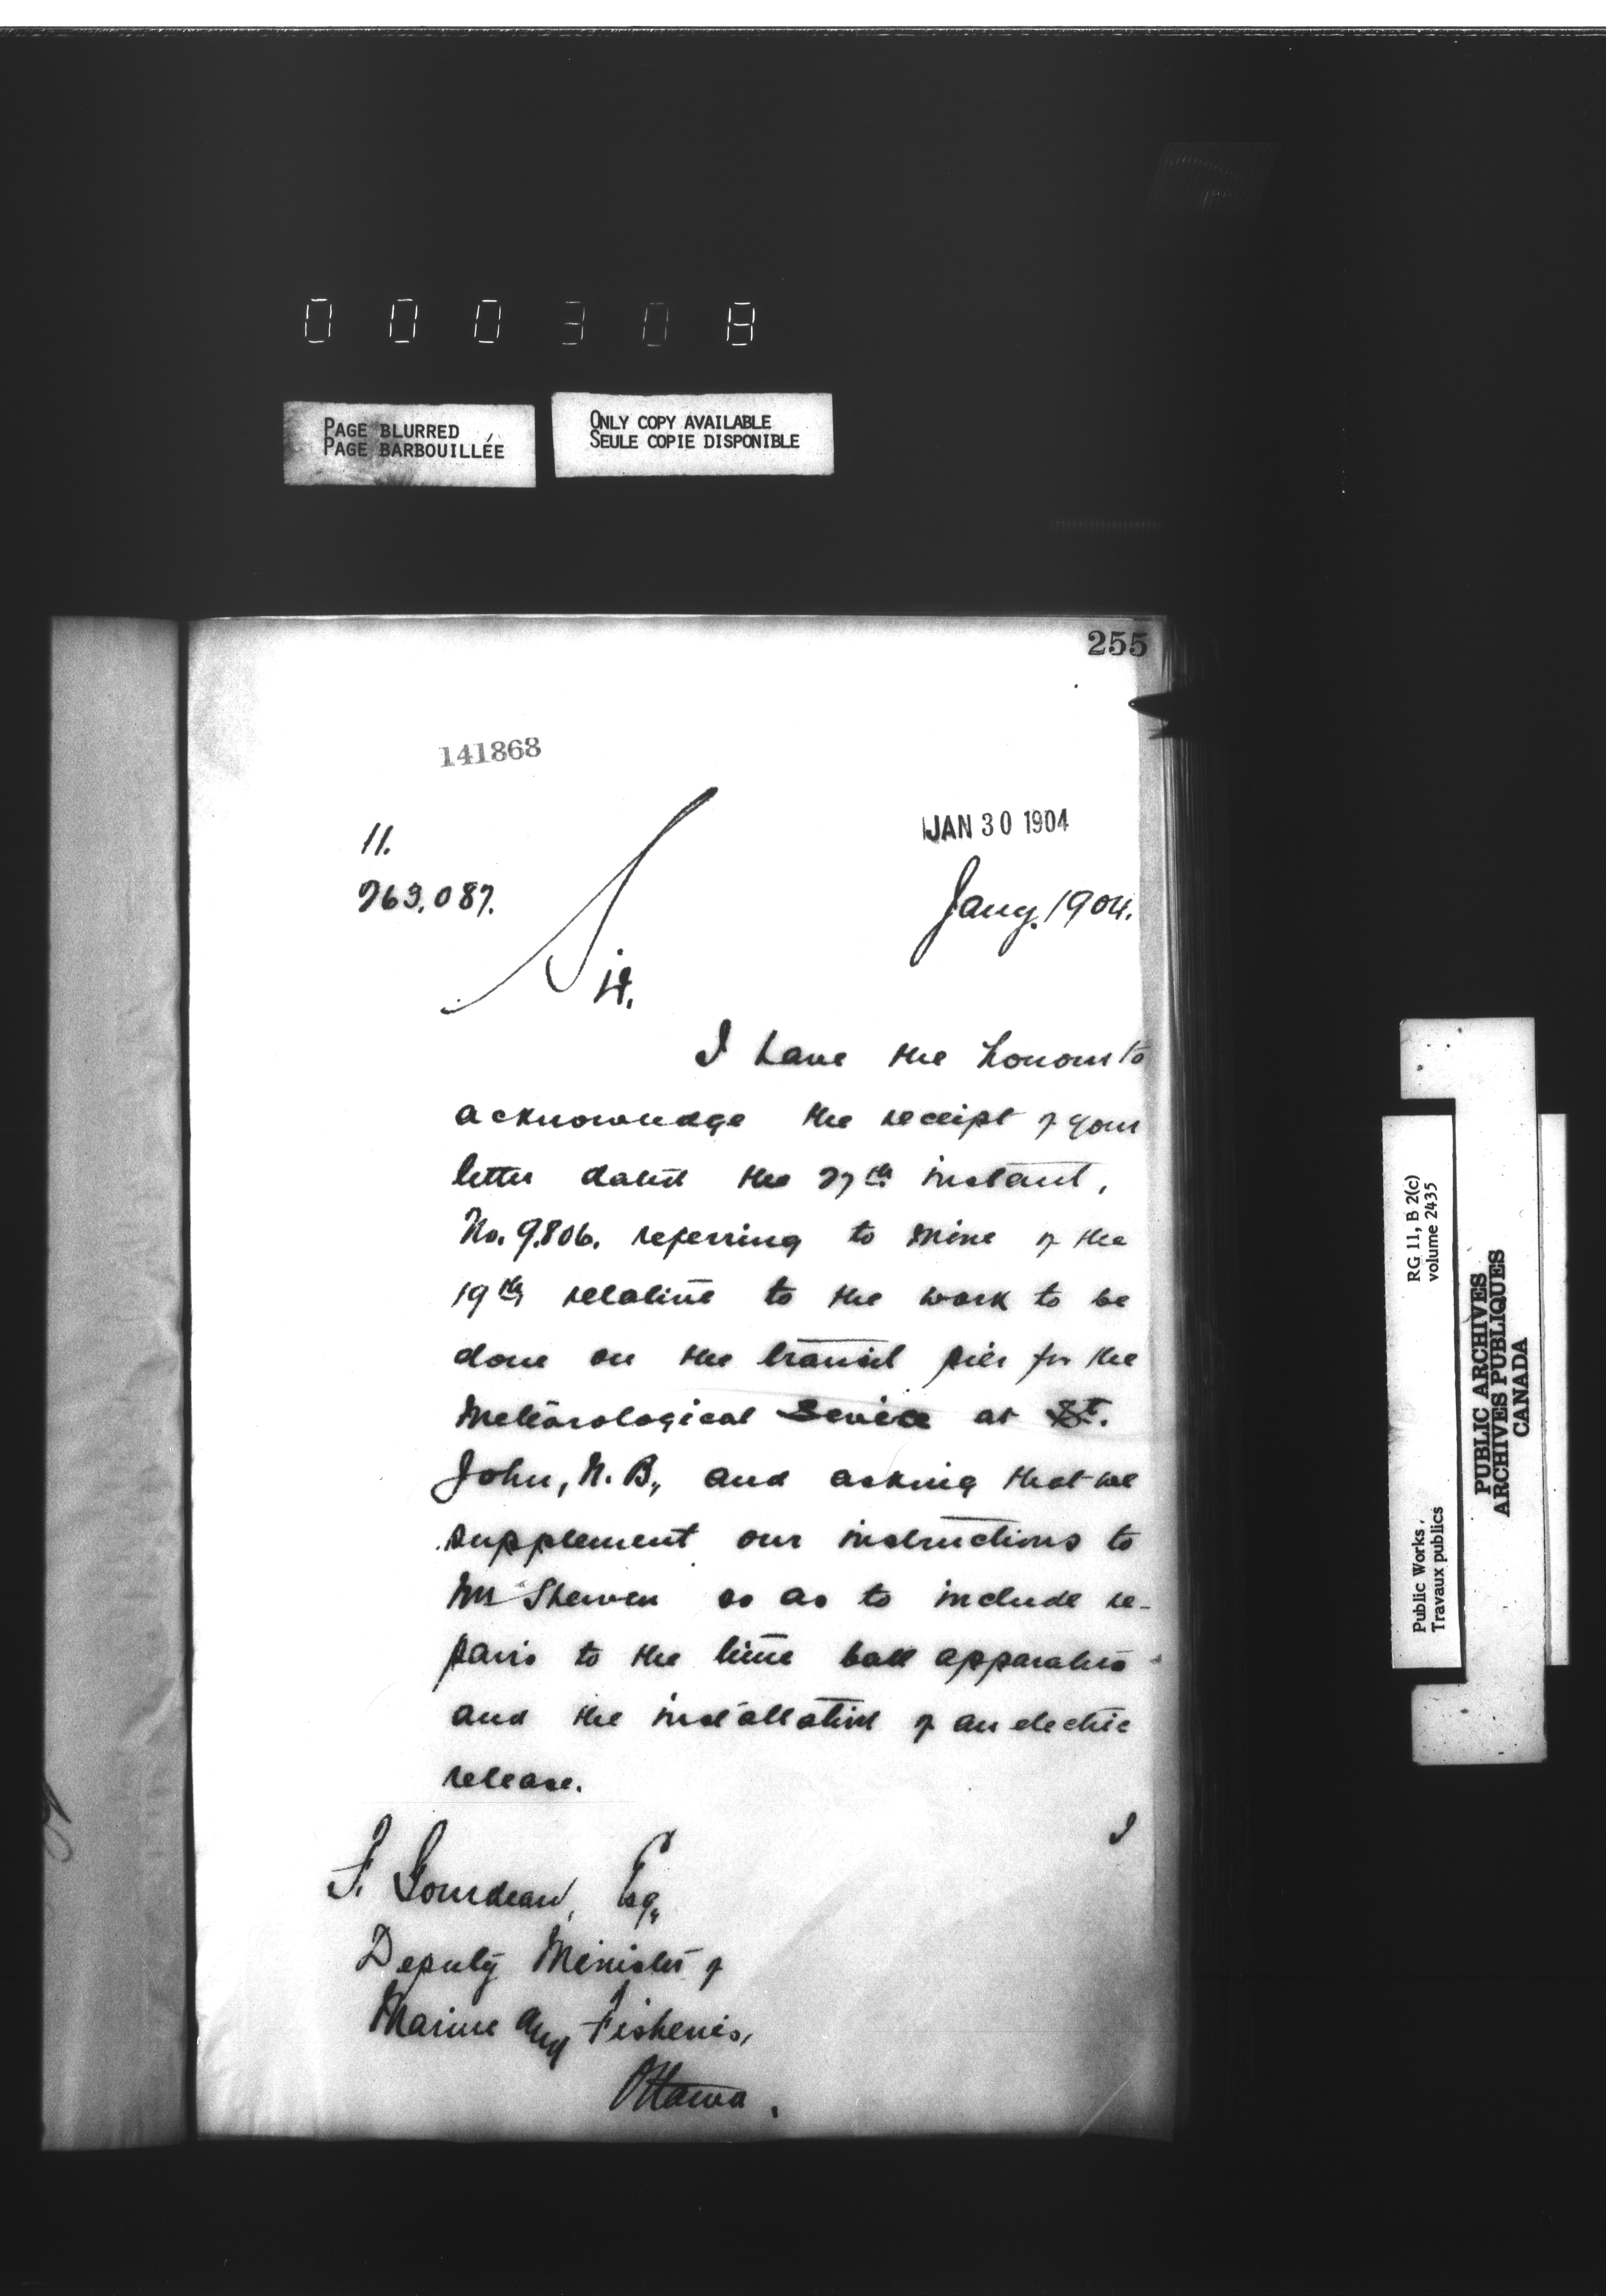 000308
PAGE BLURRED
PAGE BARBOUILLÉE
ONLY COPY AVAILABLE
SEULE COPIE DISPONIBLE
255
141868
JAN 30 1904
11.
263,087.
Jany. 1904.
Sir,
I have the honour to
acknowledge the receipt of your
letter dated the 27th instant,
No. 9,806, referring to mine of the
19th relative to the work to be
done on the transit pier for the
Meteorological Service at St.
John, N. B., and asking that we
supplement our instructions to
Mr Shewen so as to include re-
pairs to the time ball apparatus
and the installation of an electric
release.
I
F. Gourdeau, Esq.,
Deputy Minister of
Marine and Fisheries,
Ottawa.
RG 11, B 2(c)
volume 2435
Public Works,
Travaux publics
PUBLIC ARCHIVES
ARCHIVES PUBLIQUES
CANADA